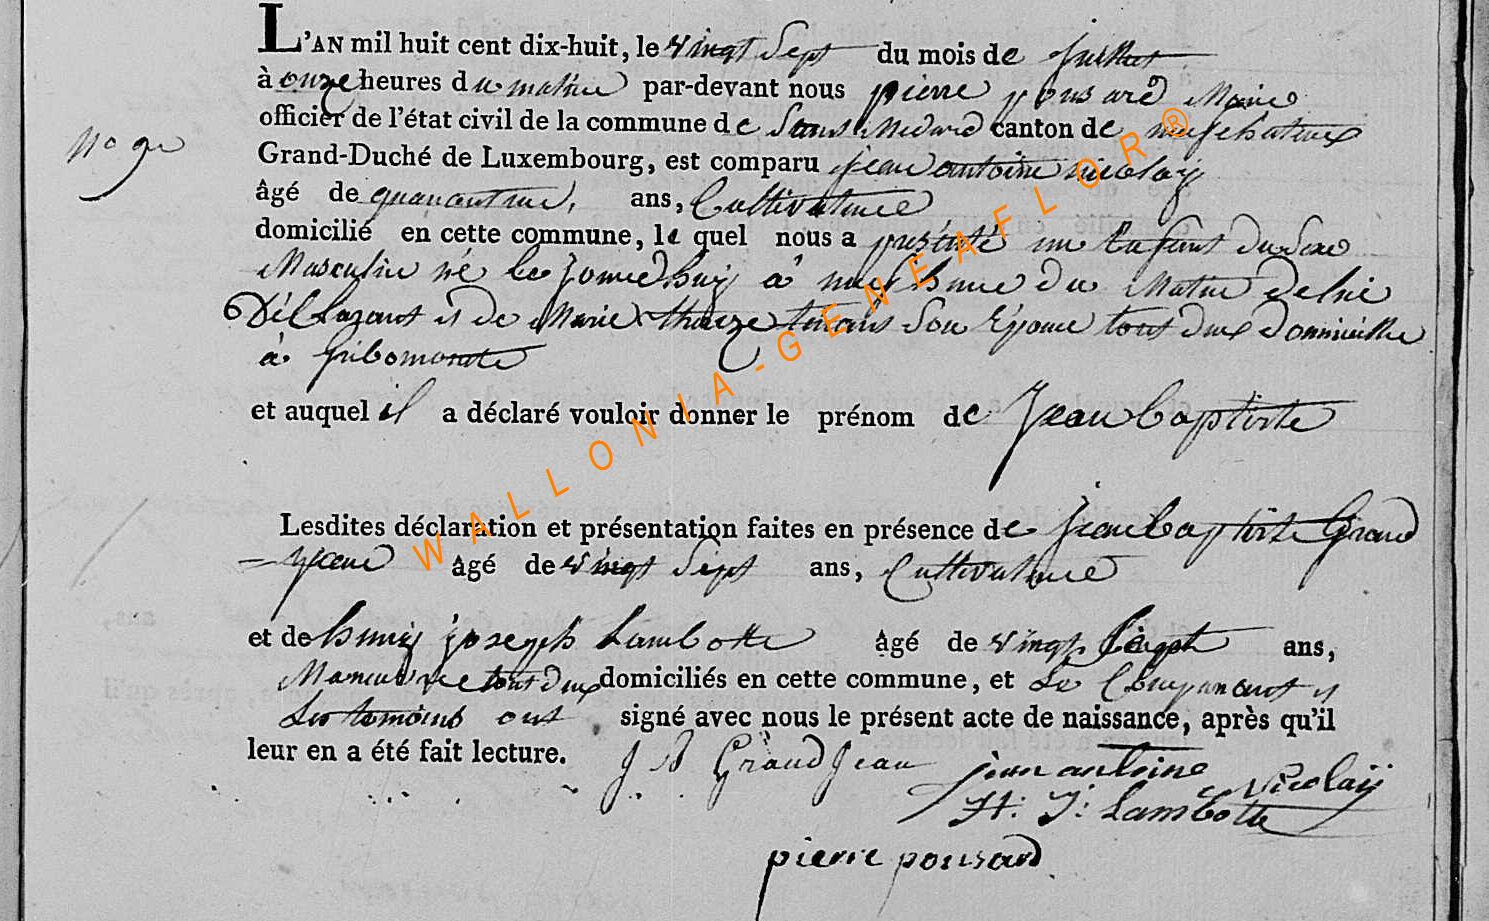 L'AN mil huit cent dix-huit, le vingt Sept du mois de juillet
à onze heures du matin par-devant nous pierre pousard Maire
officier de l'état civil de la commune de Saint Medard canton de neufchateau
Grand-Duché de Luxembourg, est comparu jean antoine nicolay
âgé de quarante ans, Cultivateur
domicilié en cette commune, le quel nous a présenté un Enfant du Sexe
Masculin né ce jourdhuy à neuf heure du Matin de lui
Déclarant et de Marie Son Epouse tout deux
à gribomonte
et auquel il a déclaré vouloir donner le prénom de Jean baptiste
Lesdites déclaration et présentation faites en présence de jean baptiste Grand
= jean âgé de vingt Sept ans, Cultivateur
et de henry joseph Lambotte âgé de vingt ans,
tout deux domiciliés en cette commune, et Le Comparant et
Les temoins ont signé avec nous le présent acte de naissance, après qu'il
leur en a été fait lecture.
J B Grand Jean
jean antoine Nicolaÿ
H: J: Lambotte
pierre pousard
WALLONIA-GENEAFLOR®